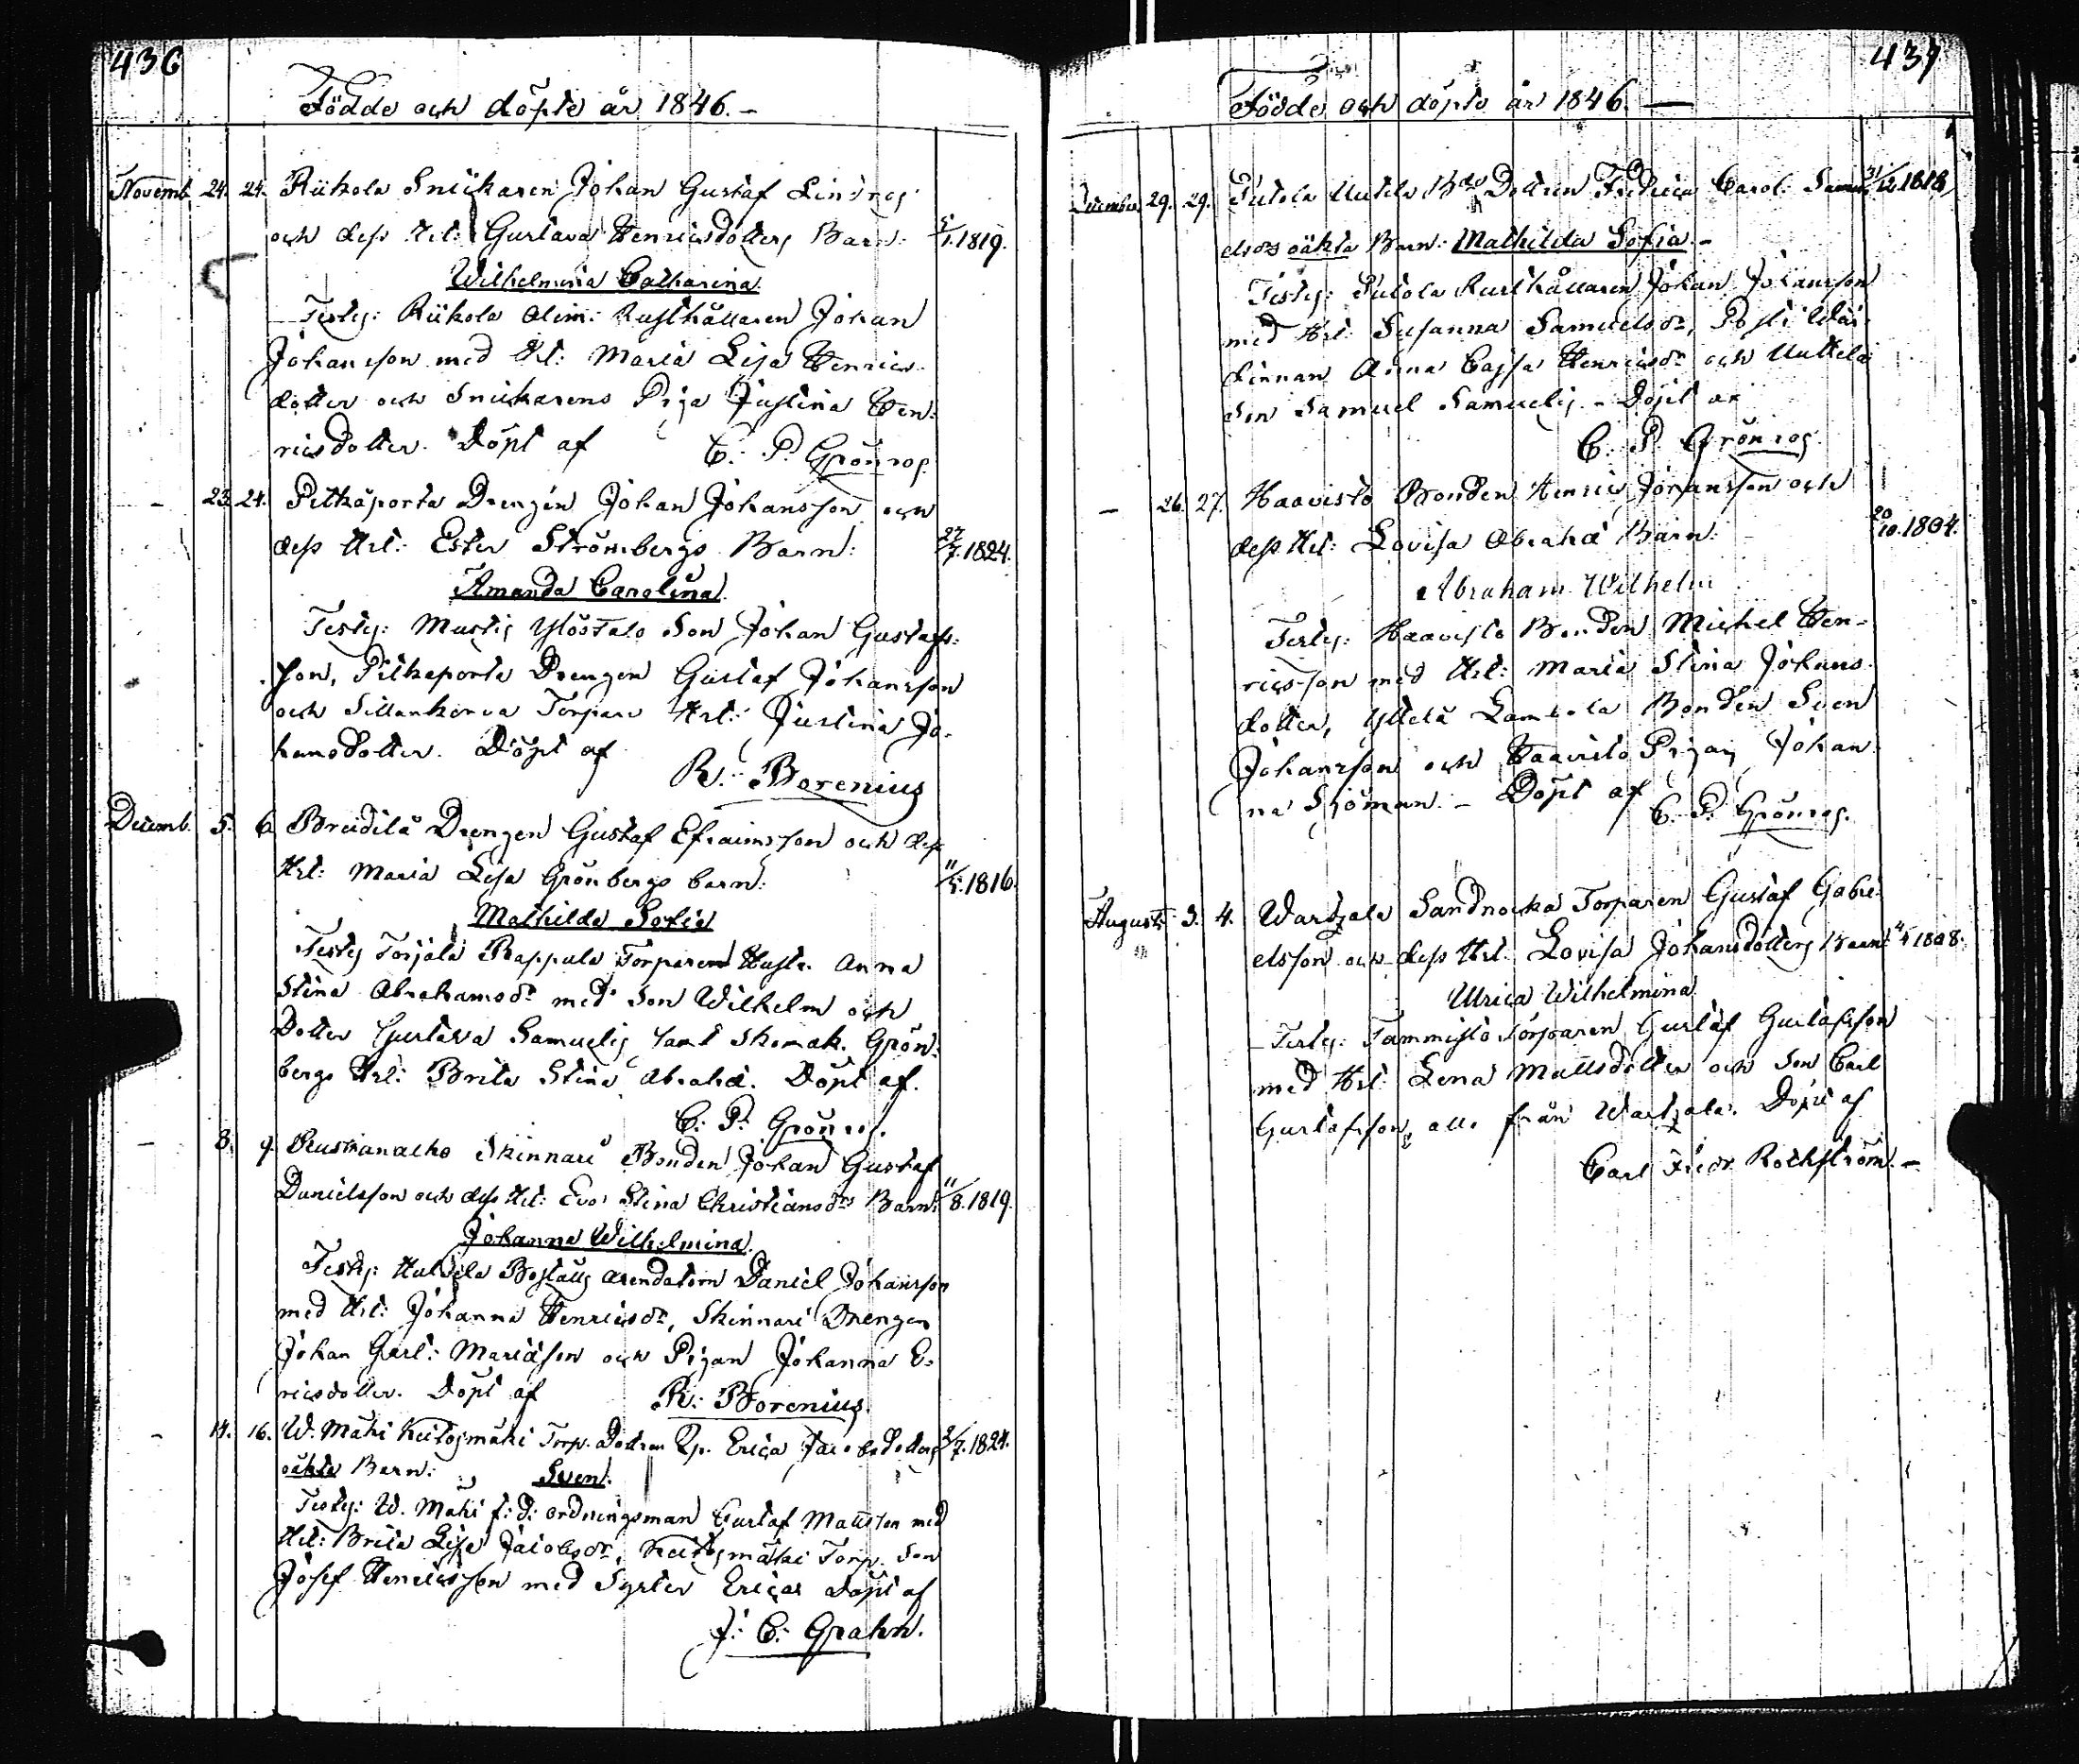 436
Födde och döpte år 1846.-
Novemb. 24. 24. Riikola Snickaren Johan Gustaf Lindros
och dess Hst: Gustava Henricsdotters Barn: 5/1.1819.
Wilhelmina Catharina.
Testes: Riikola Rusthållaren Johan
Johansson med Hst: Maria Lisa Henrics
dotter och Snickarens Piga Justina Hen-
ricsdotter. Döpt af C. P. Grönros.
- 23. 24. Pitkäporta Drengen Johan Johansson och
dess Hst: Ester Strömbergs Barn: 27/7.1824.
Amanda Carolina.
Testes: Ylöstalo Son Johan Gustafs-
son, Pitkäporta Drengen Gustaf Johansson
och Torpare Hst: Justina Jo-
hansdotter. Döpt af
R. Borenius
Decemb. 5. 6. Drengen Gustaf Efraimsson och dess
Hst: Maria Lisa Grönbergs barn: 11/5.1816.
Mathilda Sofia
Testes Rappula Torparen Hustr. Anna
Stina Abrahamsdr med Son Wilhelm och
Dotter Gustava Samuels samt Skomak. Grön-
bergs Hst: Brita Stina Abrahad. Döpt af.
C. P. Grönros.
- 8. 9. Skinnari Bonden Johan Gustaf
Danielsson och dess Hst: Eva Stina Christiansdrs Barn: 11/8.1819.
Johanna Wilhelmina.
Testes: Boställs arendatorn Daniel Johansson
med Hst: Johanna Henricsdr, Skinnari Drengen
Johan Garl: Mariason och Pigan Johanna E-
ricsdotter. Döpt af R. Borenius.
- 14. 16. W. Mäki Torp. Dottren Qp. Erica Jacobsdotters 2/7.1824.
oäkta Barn: Sven.
Testes: W. Mäki f: d: ordningsman Gustaf Mattsson med
Hst: Brita Lisa Jacobsdr, Torp. Son
Josef Henricsson med Syster Erica Döpt af
J. C. Grahn.
437
Födde och döpte år 1846. -
December. 29. 29. Dottren Fredrica Carol: 31/12.1818,
oäkta Barn: Mathilda Sofia.-
Testes: Rusthållaren Johan Johansson
med Hst: Susanna Samuelsdr,
Anna Cajsa Henricsdr och Uuttela
Son Samuel Samuels.- Döpt af
C. P. Grönros.
- 26. 27. Haavisto Bonden Henric Johansson och
dess Hst: Lovisa Abrahad Barn: 20/10.1804.
Abraham Wilhelm
Testes: Haavisto Bonden Michel Hen-
ricsson med Hst: Maria Stina Johans-
dotter, Bonden Sven
Johansson och Haavisto Pigan Johan-
na Sjöman.- Döpt af
C. P. Grönros.
Augusti 3. 4. Wartsala Sandnocka Torparen Gustaf Gabri-
elsson och dess Hst: Lovisa Johansdotters Barn: 1808.
Ulrica Wilhelmina
Testes: Tammisto Torparen Gustaf Gustafsson
med Hst: Lena Mattsdotter och Son Carl
Gustafsson, alla från Wartsala. Döpt af
Carl Fredr. Rothström.-